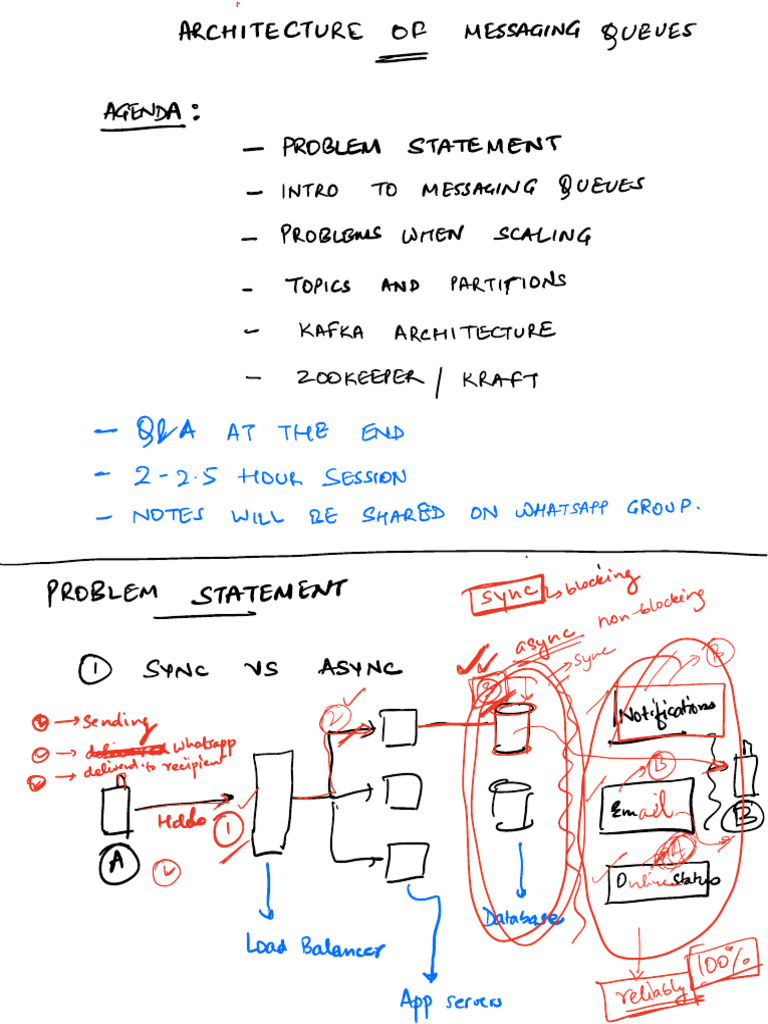 ARCHITECTURE OF MESSAGING QUEUES
AGENDA:
- PROBLEM STATEMENT
- INTRO TO MESSAGING QUEUES
- PROBLEMS WHEN SCALING
- TOPICS AND PARTITIONS
- KAFKA ARCHITECTURE
- ZOOKEEPER / KRAFT
- Q&A AT THE END
- 2-2.5 HOUR SESSION
- NOTES WILL BE SHARED ON WHATSAPP GROUP.
PROBLEM STATEMENT
sync → blocking
async non-blocking
→ sync
① SYNC VS ASYNC
→ Sending
→ Whatsapp
→ delivered to recipient
②
③
B
Notifications
B
Email
B
④
Online status
Hello
①
A
Load Balancer
App servers
Database
reliably
100%